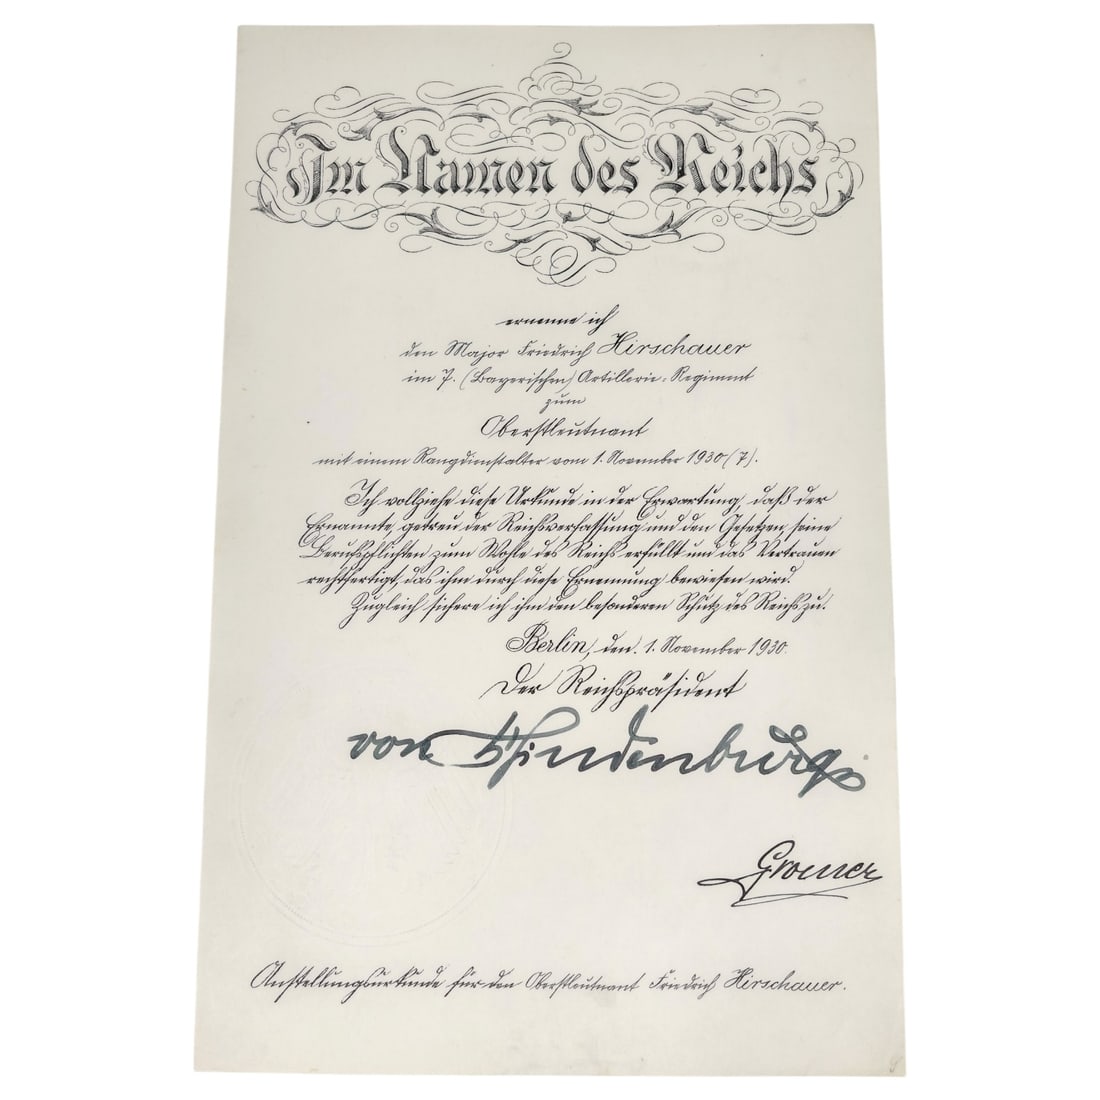 Im Namen des Reichs
ernenne ich
den Major Friedrich Hirschauer
im 7. (Bayerischen) Artillerie-Regiment
zum
Oberstleutnant
mit einem Rangdienstalter vom 1. November 1930 (7).
Ich vollziehe diese Urkunde in der Erwartung, daß der
Ernannte getreu der Reichsverfassung und den Gesetzen seine
Berufspflichten zum Wohle des Reichs erfüllt und das Vertrauen
rechtfertigt, das ihm durch diese Ernennung bewiesen wird.
Zugleich sichere ich ihm den besonderen Schutz des Reichs zu.
Berlin, den 1. November 1930.
Der Reichspräsident
von Hindenburg
Groener
Anstellungsurkunde für den Oberstleutnant Friedrich Hirschauer.